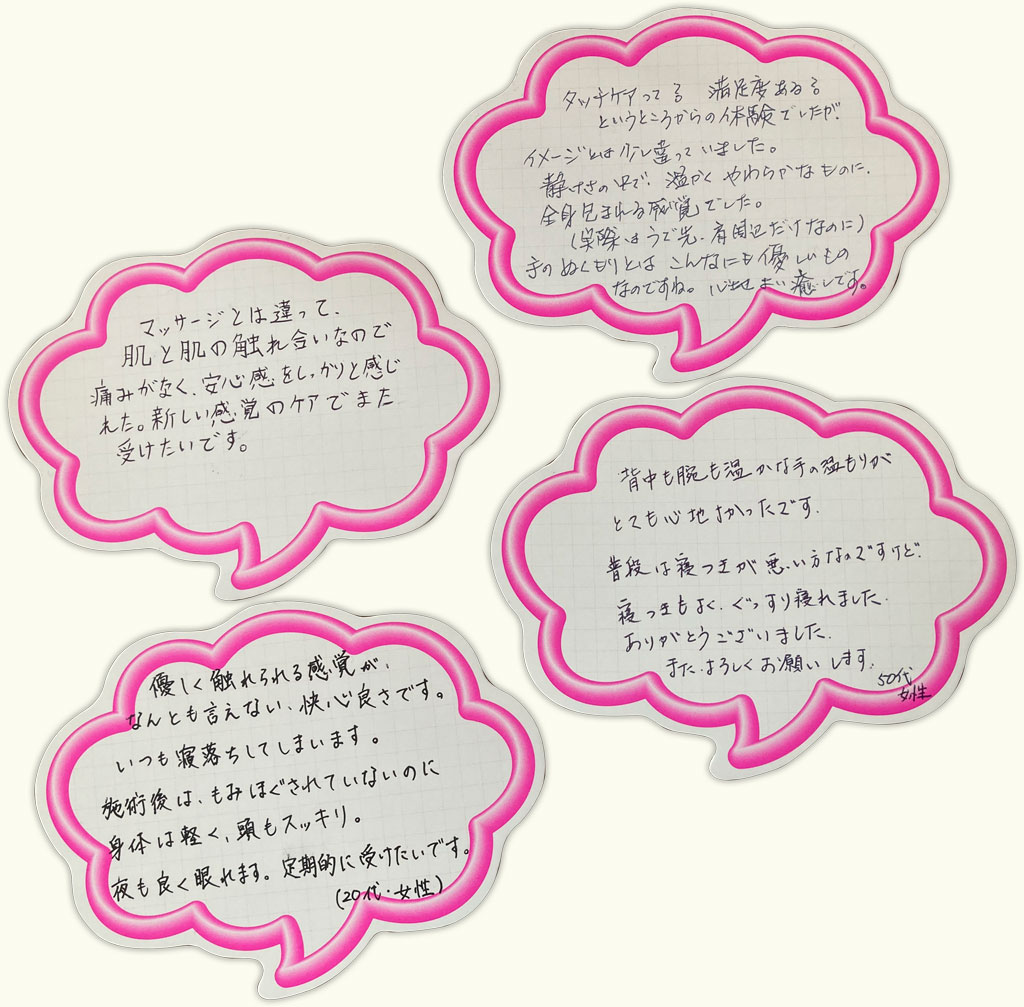 タッチケアってる 満足度ある？
というところからの体験でしたが、
イメージとは少し違っていました。
静けさの中で、温かくやわらかなものに、
全身包まれる感覚でした。
(実際はうで先、肩周辺だけなのに)
手のぬくもりとはこんなにも優しいもの
なのですね。心地よい癒しです。
マッサージとは違って、
肌と肌の触れ合いなので
痛みがなく、安心感をしっかりと感じ
れた。新しい感覚のケアでまた
受けたいです。
背中も腕も温かな手の温もりが
とても心地よかったです。
普段は寝つきが悪い方なのですけど、
寝つきもよく、ぐっすり寝れました。
ありがとうございました。
また、よろしくお願いします。
50代
女性
優しく触れられる感覚が、
なんとも言えない、快心良さです。
いつも寝落ちしてしまいます。
施術後は、もみほぐされていないのに
身体は軽く、頭もスッキリ。
夜も良く眠れます。定期的に受けたいです。
(20代・女性)